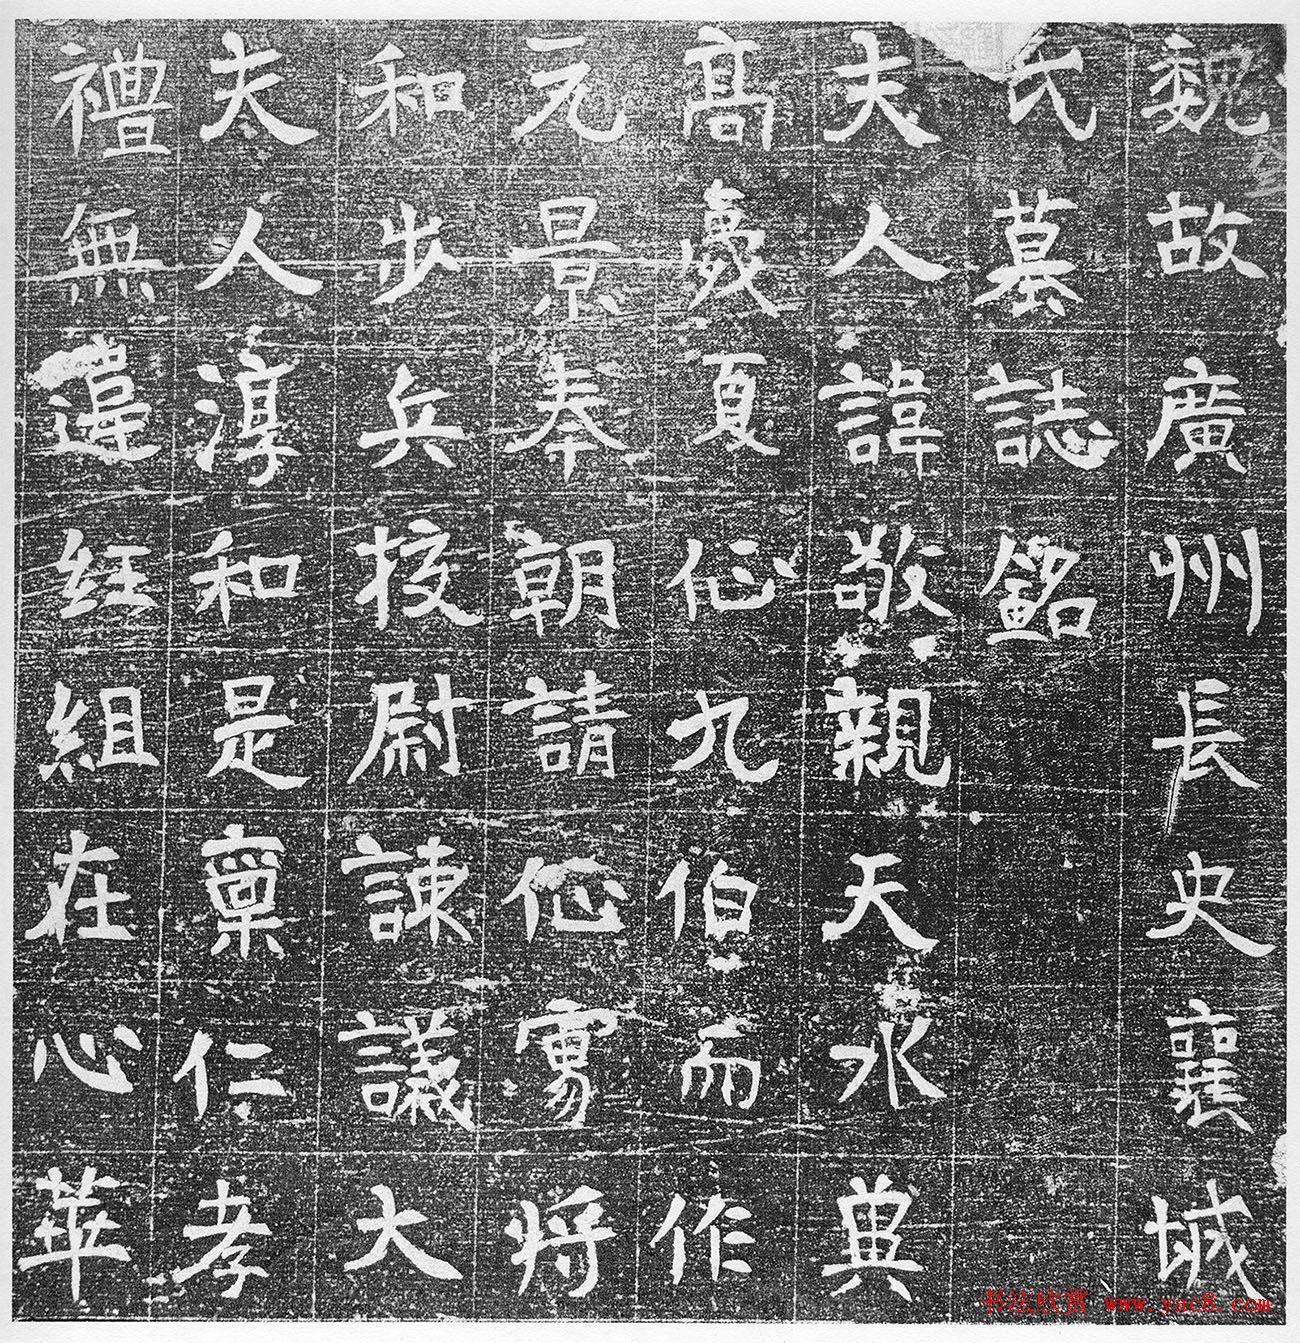 魏故廣州長史襄城
氏墓誌銘
夫人諱敬親天水典
高歲夏位九伯而作
元景奉朝請位將
和步兵校尉諫議大
夫人淳和是禀仁孝
禮無違紝組在心華
书法欣赏 www.yac8.com